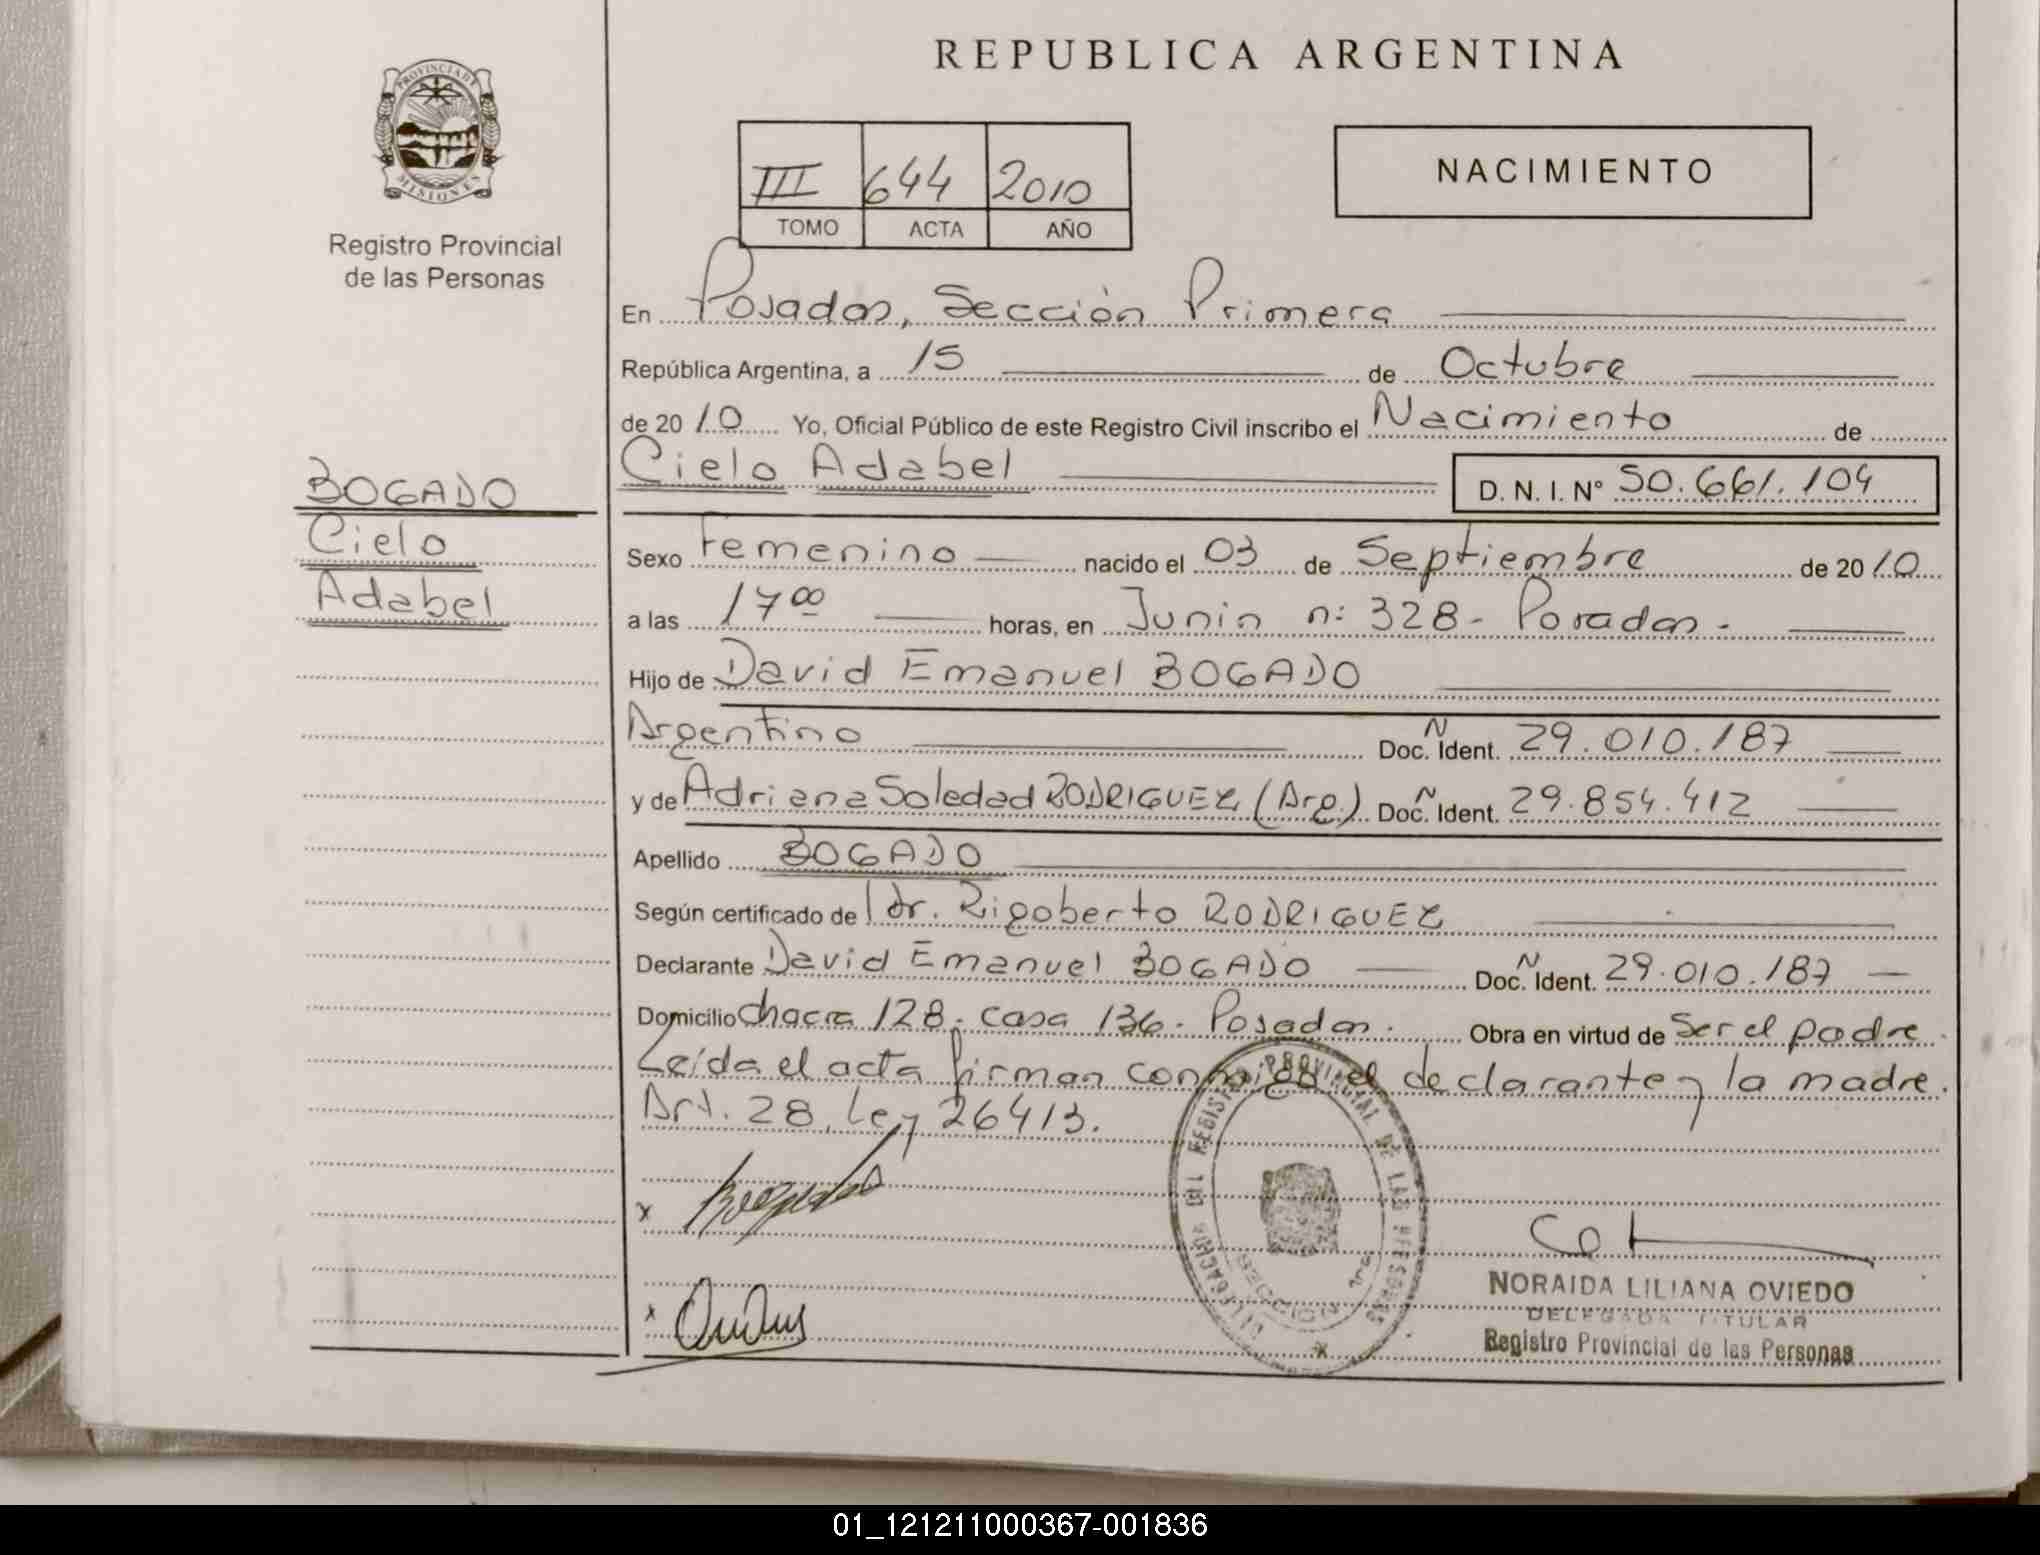 REPUBLICA ARGENTINA
PROVINCIA DE
MISIONES
Registro Provincial
de las Personas
III 644 2010
TOMO ACTA AÑO
NACIMIENTO
En Posadas, Sección Primera
República Argentina, a 15 de Octubre
de 2010 Yo, Oficial Público de este Registro Civil inscribo el Nacimiento de
Cielo Adabel D. N. I. Nº 50.661.104
BOGADO
Cielo
Adabel
Sexo Femenino nacido el 03 de Septiembre de 2010
a las 17 00 horas, en Junin n: 328 - Posadas -
Hijo de David Emanuel BOGADO
Argentino Doc. Ñ Ident. 29.010.187
y de Adriana Soledad RODRIGUEZ (Arg.) Doc. Ñ Ident. 29.854.412
Apellido BOGADO
Según certificado de dr. Rigoberto RODRIGUEZ
Declarante David Emanuel BOGADO Doc. Ñ Ident. 29.010.187
Domicilio chacra 128 - casa 136 - Posadas. Obra en virtud de Ser el padre.
Leída el acta firman conmigo el declarante y la madre.
Art. 28, Ley 26413.
x
x
DELEGACION DEL REGISTRO PROVINCIAL DE LAS PERSONAS
SECCION 1ra
NORAIDA LILIANA OVIEDO
DELEGADA TITULAR
Registro Provincial de las Personas
01_121211000367-001836